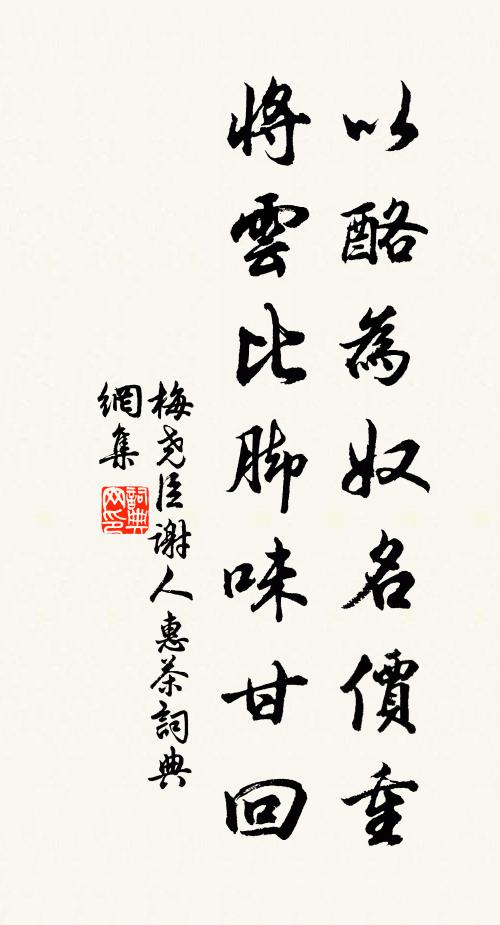 以酪為奴名價重
將雲比脚味甘回
梅尧臣謝人惠茶詞典
網集
詞典
网印